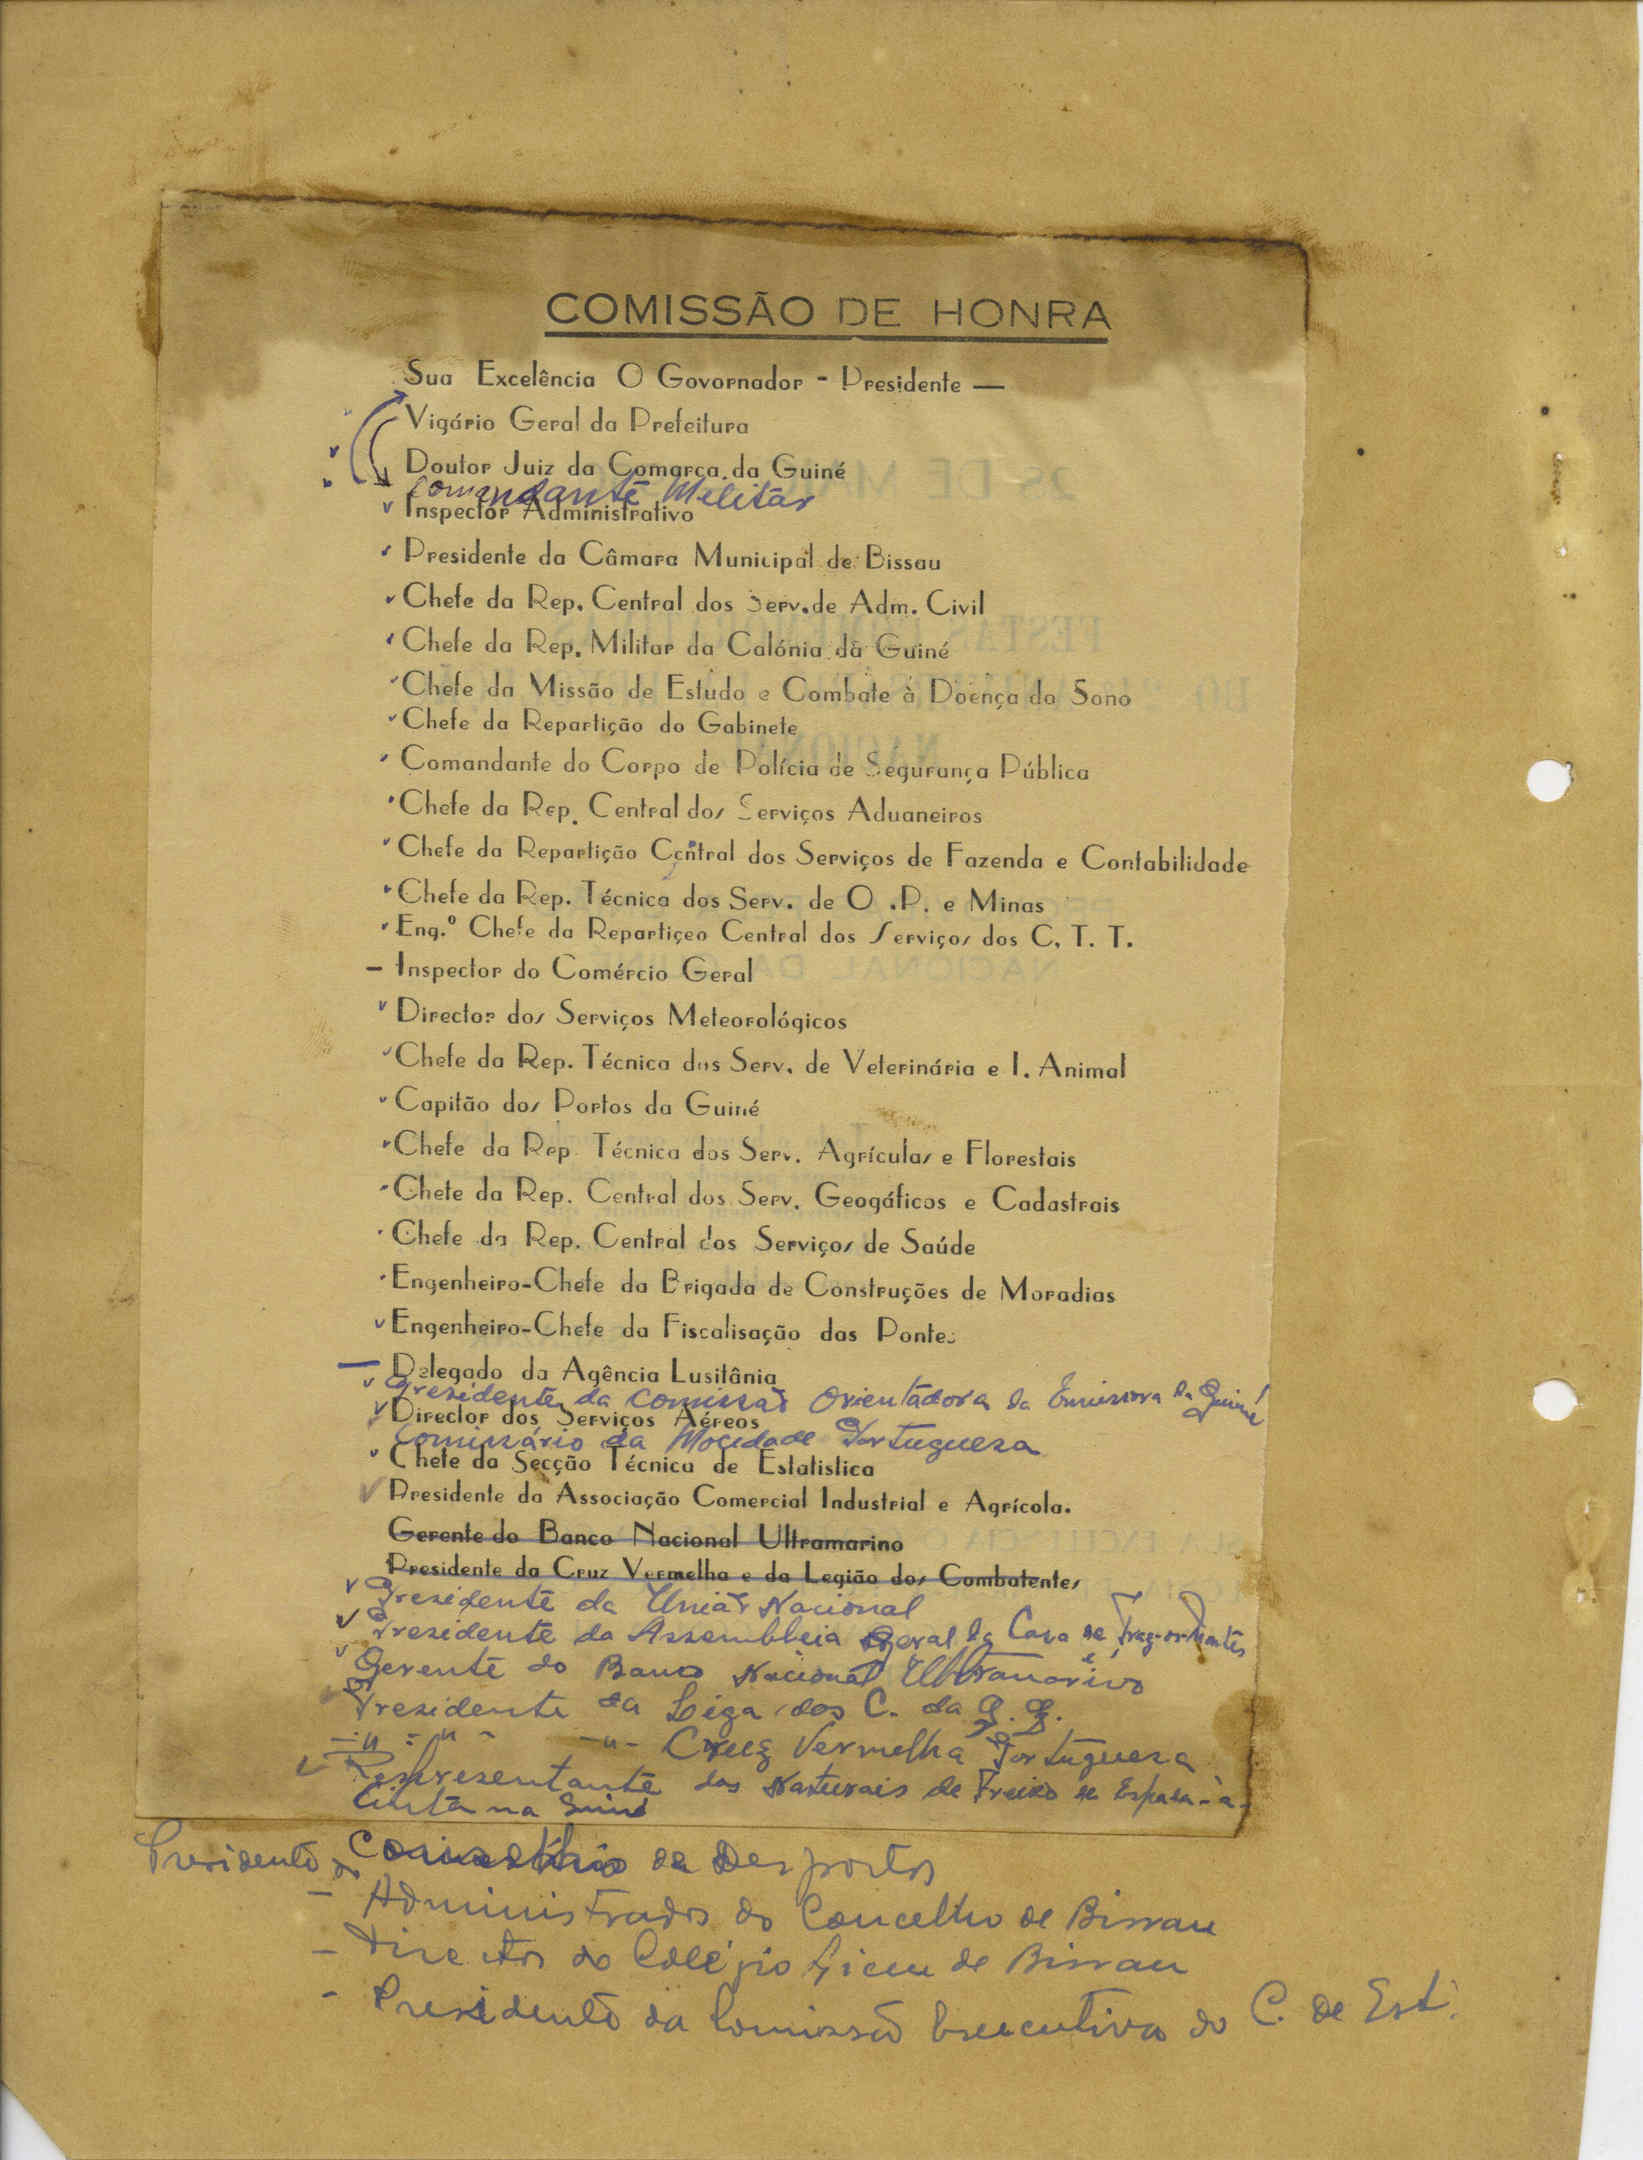 COMISSÃO DE HONRA
Sua Excelência O Governador - Presidente —
Vigário Geral da Prefeitura
Doutor Juiz da Comarca da Guiné
Comandante Militar
Inspector Administrativo
Presidente da Câmara Municipal de Bissau
Chefe da Rep. Central dos Serv. de Adm. Civil
Chefe da Rep. Militar da Calónia da Guiné
Chefe da Missão de Estudo e Combate à Doença do Sono
Chefe da Repartição do Gabinete
Comandante do Corpo de Polícia de Segurança Pública
Chefe da Rep. Central dos Serviços Aduaneiros
Chefe da Repartição Central dos Serviços de Fazenda e Contabilidade
Chefe da Rep. Técnica dos Serv. de O .P. e Minas
Eng.º Chefe da Repartiçeo Central dos Serviços dos C. T. T.
— Inspector do Comércio Geral
Director dos Serviços Meteorológicos
Chefe da Rep. Técnica dos Serv. de Veterinária e I. Animal
Capitão dos Portos da Guiné
Chefe da Rep. Técnica dos Serv. Agrículas e Florestais
Chefe da Rep. Central dos Serv. Geogáficos e Cadastrais
Chefe da Rep. Central dos Serviços de Saúde
Engenheiro-Chefe da Brigada de Construções de Moradias
Engenheiro-Chefe da Fiscalisação das Pontes
— Delegado da Agência Lusitânia
Presidente da Comissão Orientadora da Emissora da Guiné
Director dos Serviços Aéreos
Comissário da Mocidade Portuguesa
Chefe da Secção Técnica de Estatistica
Presidente da Associação Comercial Industrial e Agrícola.
Gerente do Banco Nacional Ultramarino
Presidente da Cruz Vermelha e da Legião dos Combatentes
Presidente da União Nacional
Presidente da Assembleia Geral da Casa de Traz-os-Montes
Gerente do Banco Nacional Ultramarino
Presidente da Liga dos C. da G. G.
-"- -"- -"- Cruz Vermelha Portuguesa
Representante dos Naturais de Freixo de Espada-à-
Cinta na Guiné
Presidente do Conselho de Desportos
— Administrador do Concelho de Bissau
— Director do Colégio Liceu de Bissau
- Presidente da Comissão Executiva do C. de Est.